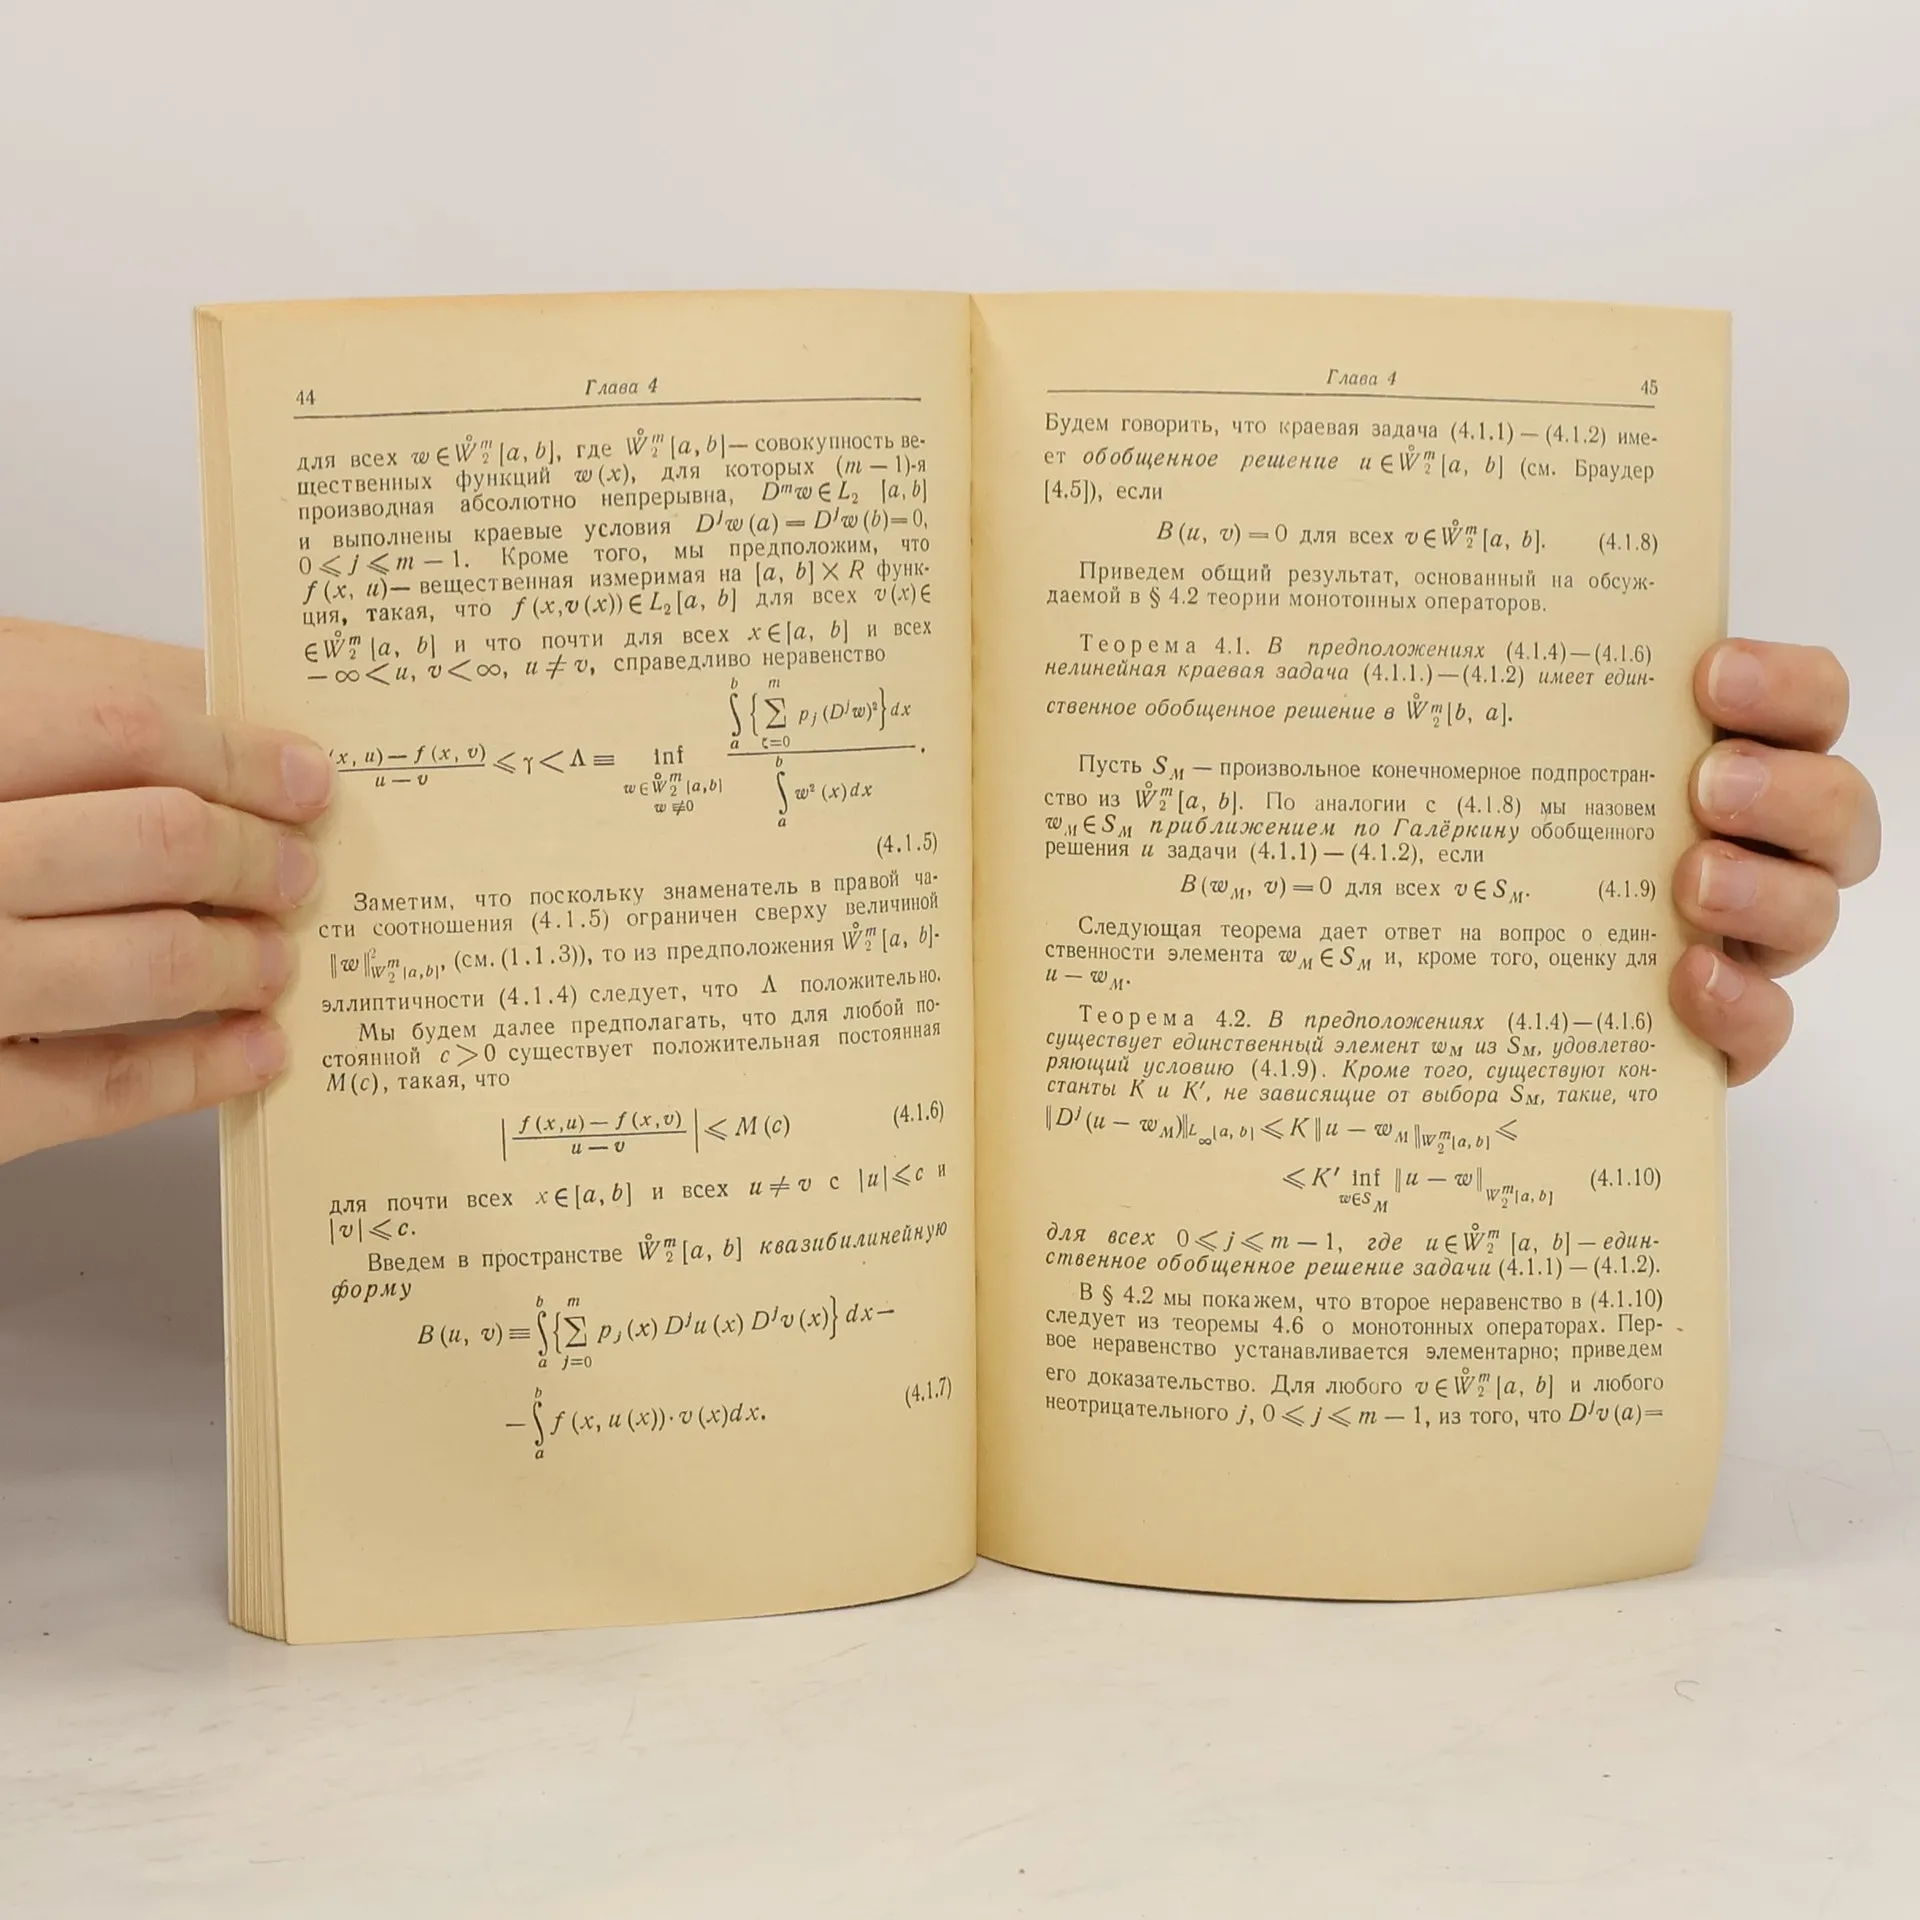 44 Глава 4
для всех w ∈ W̊₂ᵐ [a, b], где W̊₂ᵐ [a, b] — совокупность ве-
щественных функций w (x), для которых (m — 1)-я
производная абсолютно непрерывна, Dᵐw ∈ L₂ [a, b]
и выполнены краевые условия Dʲw (a) = Dʲw (b) = 0,
0 ⩽ j ⩽ m — 1. Кроме того, мы предположим, что
f (x, u) — вещественная измеримая на [a, b] × R функ-
ция, такая, что f (x, v (x)) ∈ L₂ [a, b] для всех v (x) ∈
∈ W̊₂ᵐ [a, b] и что почти для всех x ∈ [a, b] и всех
— ∞ < u, v < ∞, u ≠ v, справедливо неравенство
(x, u) — f (x, v) / u — v ⩽ γ < Λ ≡ inf_{w ∈ W̊₂ᵐ [a, b], w ≢ 0} ∫_a^b {∑_{ζ=0}^m p_j (Dʲw)²} dx / ∫_a^b w² (x) dx .
(4.1.5)
Заметим, что поскольку знаменатель в правой ча-
сти соотношения (4.1.5) ограничен сверху величиной
‖w‖²_{W₂ᵐ [a, b]}, (см. (1.1.3)), то из предположения W̊₂ᵐ [a, b]-
эллиптичности (4.1.4) следует, что Λ положительно.
Мы будем далее предполагать, что для любой по-
стоянной c > 0 существует положительная постоянная
M (c), такая, что
| f (x, u) — f (x, v) / u — v | ⩽ M (c) (4.1.6)
для почти всех x ∈ [a, b] и всех u ≠ v с |u| ⩽ c и
|v| ⩽ c.
Введем в пространстве W̊₂ᵐ [a, b] квазибилинейную
форму
B (u, v) ≡ ∫_a^b {∑_{j=0}^m p_j (x) Dʲu (x) Dʲv (x)} dx —
— ∫_a^b f (x, u (x)) · v (x) dx. (4.1.7)
Глава 4 45
Будем говорить, что краевая задача (4.1.1) — (4.1.2) име-
ет обобщенное решение u ∈ W̊₂ᵐ [a, b] (см. Браудер
[4.5]), если
B (u, v) = 0 для всех v ∈ W̊₂ᵐ [a, b]. (4.1.8)
Приведем общий результат, основанный на обсуж-
даемой в § 4.2 теории монотонных операторов.
Теорема 4.1. В предположениях (4.1.4) — (4.1.6)
нелинейная краевая задача (4.1.1.) — (4.1.2) имеет един-
ственное обобщенное решение в W̊₂ᵐ [b, a].
Пусть S_M — произвольное конечномерное подпростран-
ство из W̊₂ᵐ [a, b]. По аналогии с (4.1.8) мы назовем
w_M ∈ S_M приближением по Галёркину обобщенного
решения u задачи (4.1.1) — (4.1.2), если
B (w_M, v) = 0 для всех v ∈ S_M. (4.1.9)
Следующая теорема дает ответ на вопрос о един-
ственности элемента w_M ∈ S_M и, кроме того, оценку для
u — w_M.
Теорема 4.2. В предположениях (4.1.4) — (4.1.6)
существует единственный элемент w_M из S_M, удовлетво-
ряющий условию (4.1.9). Кроме того, существуют кон-
станты K и K′, не зависящие от выбора S_M, такие, что
‖Dʲ (u — w_M)‖_{L_∞ [a, b]} ⩽ K ‖u — w_M‖_{W₂ᵐ [a, b]} ⩽
⩽ K′ inf_{w ∈ S_M} ‖u — w‖_{W₂ᵐ [a, b]} (4.1.10)
для всех 0 ⩽ j ⩽ m — 1, где u ∈ W̊₂ᵐ [a, b] — един-
ственное обобщенное решение задачи (4.1.1) — (4.1.2).
В § 4.2 мы покажем, что второе неравенство в (4.1.10)
следует из теоремы 4.6 о монотонных операторах. Пер-
вое неравенство устанавливается элементарно; приведем
его доказательство. Для любого v ∈ W̊₂ᵐ [a, b] и любого
неотрицательного j, 0 ⩽ j ⩽ m — 1, из того, что Dʲv (a) =